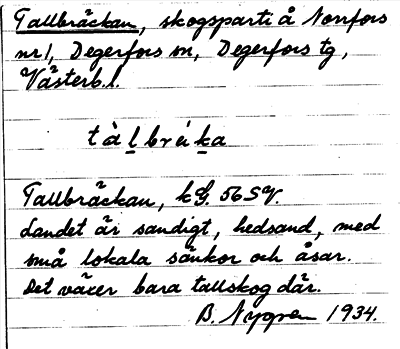 Tallbräckan, skogsparti å Norrfors
nr 1, Degerfors sn, Degerfors tg,
Västerb. l.
tàlbréika
Tallbräckan, kG. 56 SV.
Landet är sandigt, hedsand, med
små lokala sänkor och åsar.
Det växer bara tallskog där.
B. Nygren 1934.